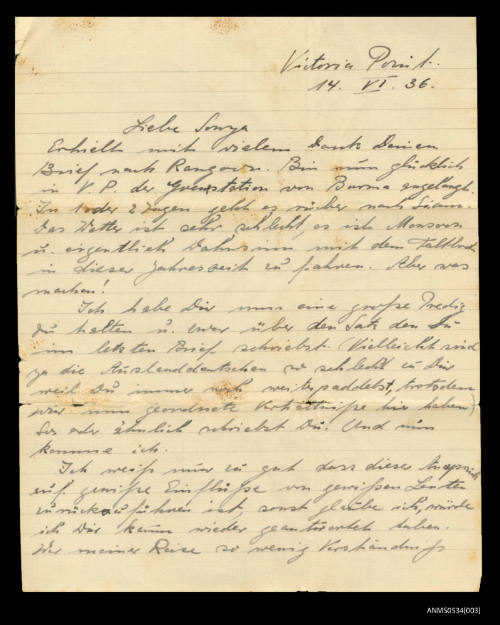 Victoria Point.
14. VI. 36.
Liebe Sonya
Erhielt mit vielem Dank Deinen
Brief nach Rangoon. Bin nun glücklich
in V. P. der Grenzstation von Burma angelangt.
In 1 oder 2 Tagen geht es rüber nach Siam.
Das Wetter ist sehr schlecht, es ist Monsoon
u. eigentlich Wahnsinn mit dem Faltboot
in dieser Jahreszeit zu fahren. Aber was
machen!
Ich habe Dir nun eine große Predigt
zu halten u. zwar über den Satz den Du
im letzten Brief schriebst. (Vielleicht sind
ja die Auslanddeutschen so schlecht zu Dir
weil Du immer noch weiterpaddelst, trotzdem
wir nun geordnete Verhältniße hier haben)
So oder ähnlich schriebst Du. Und nun
komme ich.
Ich weiß nur zu gut dass dieser Ausspruch
auf gewiße Einflüße von gewißen Leuten
zurückzuführen ist, sonst glaube ich, würde
ich Dir kaum wieder geantwortet haben.
Wer meiner Reise so wenig Verständniß
ANMS0534[003]